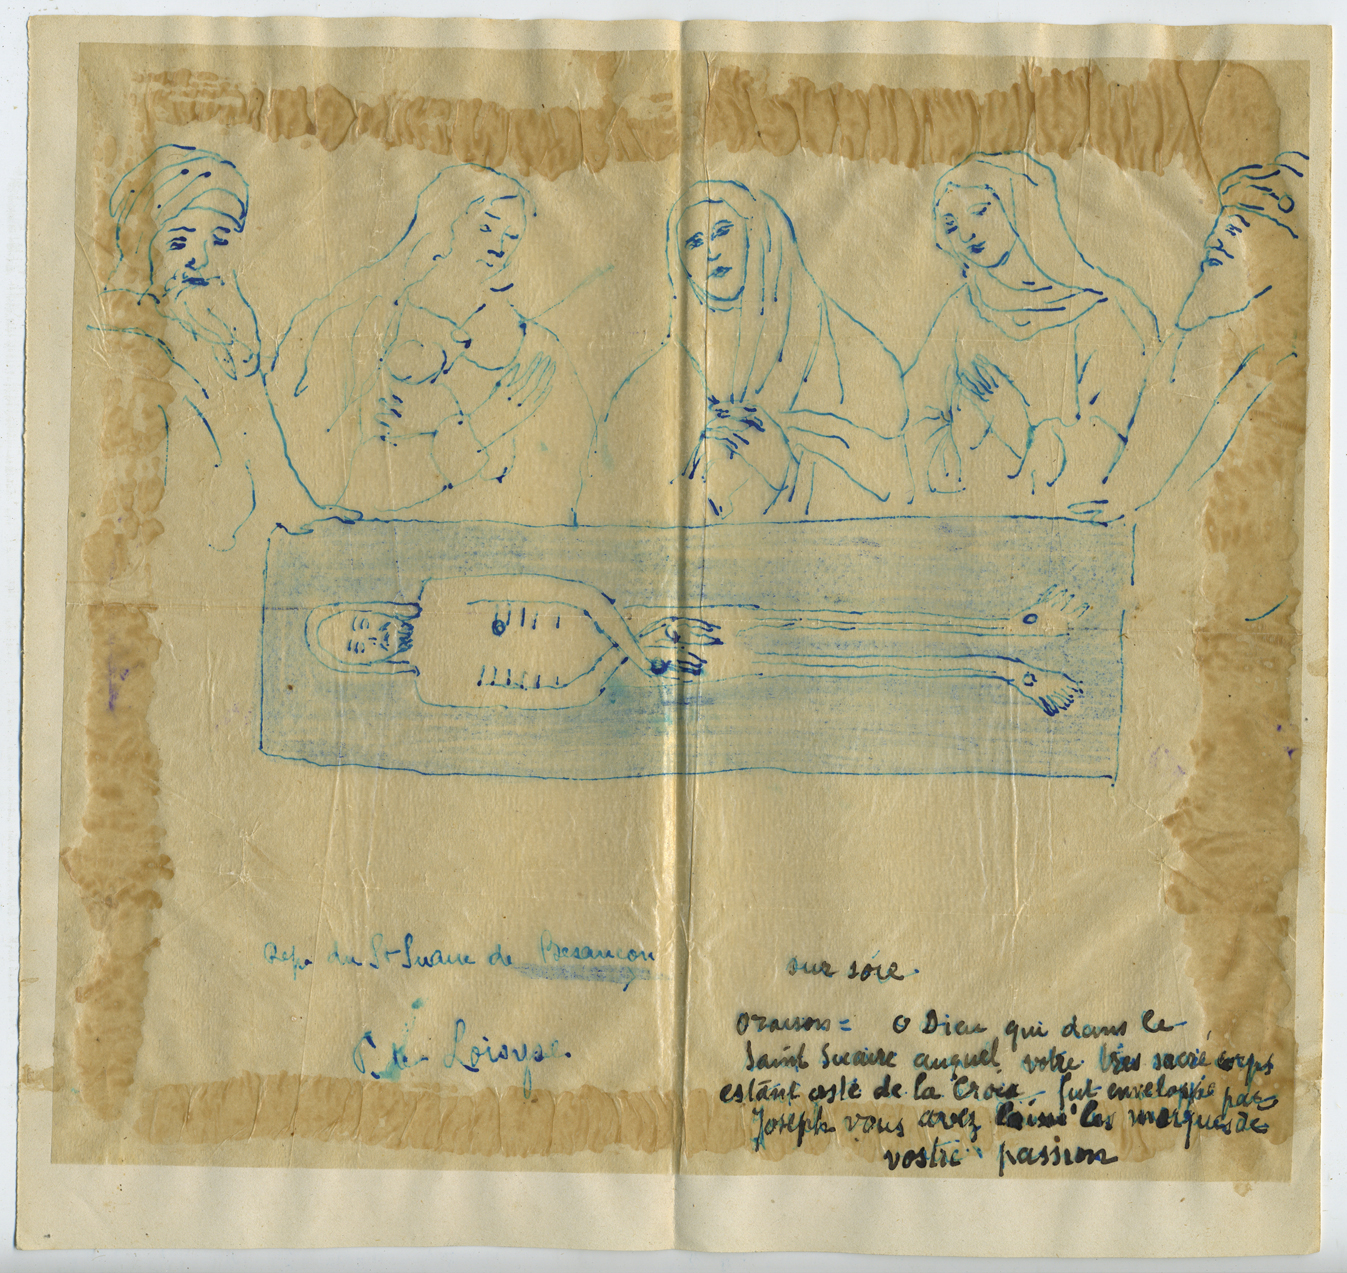 Rep. du St Suaire de Besançon
sur soie.
P. de Loisyse.
Oraison = O Dieu qui dans le
Saint Suaire auquel votre très sacré corps
estant osté de la Croix fut enveloppé par
Joseph vous avez laissé les marques de
vostre passion